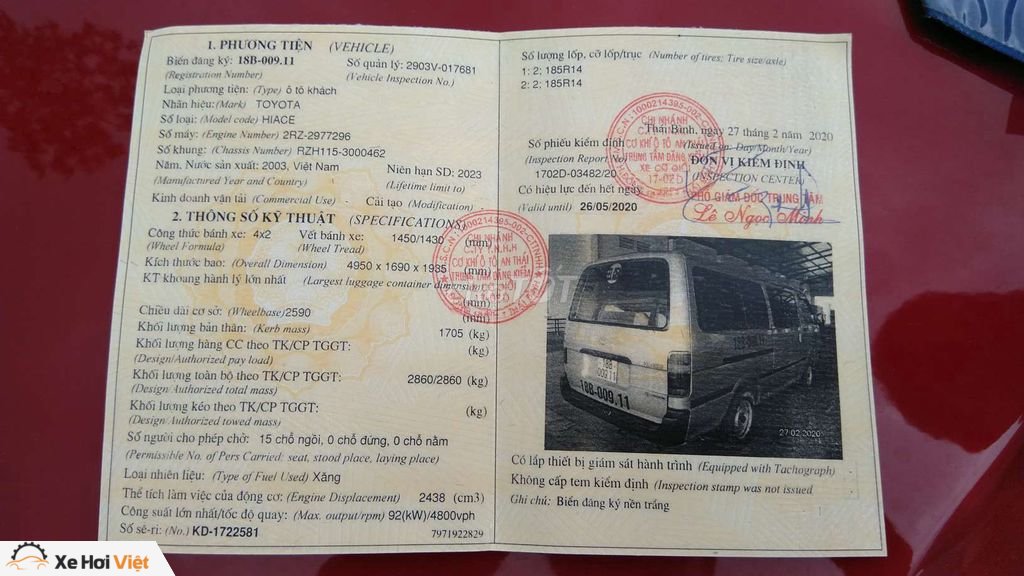 1. PHƯƠNG TIỆN (VEHICLE)
Biển đăng ký: 18B-009.11 Số quản lý: 2903V-017681
(Registration Number) (Vehicle Inspection No.)
Loại phương tiện: (Type) ô tô khách
Nhãn hiệu: (Mark) TOYOTA
Số loại: (Model code) HIACE
Số máy: (Engine Number) 2RZ-2977296
Số khung: (Chassis Number) RZH115-3000462
Năm, Nước sản xuất: 2003, Việt Nam Niên hạn SD: 2023
(Manufactured Year and Country) (Lifetime limit to)
Kinh doanh vận tải (Commercial Use) Cải tạo (Modification)
2. THÔNG SỐ KỸ THUẬT (SPECIFICATIONS)
Công thức bánh xe: 4x2 Vết bánh xe: 1450/1430 (mm)
(Wheel Formula) (Wheel Tread)
Kích thước bao: (Overall Dimension) 4950 x 1690 x 1935 (mm)
KT khoang hành lý lớn nhất (Largest luggage container dimension)
(mm)
Chiều dài cơ sở: (Wheelbase) 2590 (mm)
Khối lượng bản thân: (Kerb mass) 1705 (kg)
Khối lượng hàng CC theo TK/CP TGGT: (kg)
(Design/Authorized pay load)
Khối lượng toàn bộ theo TK/CP TGGT: 2860/2860 (kg)
(Design/Authorized total mass)
Khối lượng kéo theo TK/CP TGGT: (kg)
(Design/Authorized towed mass)
Số người cho phép chở: 15 chỗ ngồi, 0 chỗ đứng, 0 chỗ nằm
(Permissible No. of Pers Carried: seat, stood place, laying place)
Loại nhiên liệu: (Type of Fuel Used) Xăng
Thể tích làm việc của động cơ: (Engine Displacement) 2438 (cm3)
Công suất lớn nhất/tốc độ quay: (Max. output/rpm) 92(kW)/4800vph
Số sê-ri: (No.) KD-1722581 7971922829
Số lượng lốp, cỡ lốp/trục (Number of tires; Tire size/axle)
1: 2; 185R14
2: 2; 185R14
Thái Bình, ngày 27 tháng 2 năm 2020
Số phiếu kiểm định (Issued on: Day/Month/Year)
(Inspection Report No) ĐƠN VỊ KIỂM ĐỊNH
1702D-03482/20 (INSPECTION CENTER)
Có hiệu lực đến hết ngày PHÓ GIÁM ĐỐC TRUNG TÂM
(Valid until) 26/05/2020 Lê Ngọc Minh
S.C.N: 1000214395-002-CTTNHH
CHI NHÁNH
CƠ KHÍ Ô TÔ AN THÁI
TRUNG TÂM ĐĂNG KIỂM
XE CƠ GIỚI
17-02D
S.C.N: 1000214395-002-CTTNHH
CHI NHÁNH
C.TY T.N.H.H
CƠ KHÍ Ô TÔ AN THÁI
TRUNG TÂM ĐĂNG KIỂM
XE CƠ GIỚI
17-02D
18B-009.11
18B
009.11
18B-009.11
27 02 2020
Có lắp thiết bị giám sát hành trình (Equipped with Tachograph)
Không cấp tem kiểm định (Inspection stamp was not issued
Ghi chú: Biển đăng ký nền trắng
Xe Hơi Việt